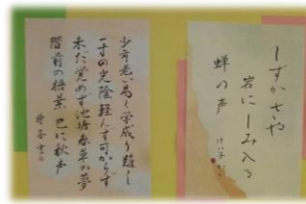 しずかさや
岩にしみ入る
蝉の声
少年老い易く学成り難し
一寸の光陰軽んず可からず
未だ覚めず池塘春草の夢
階前の梧葉已に秋声